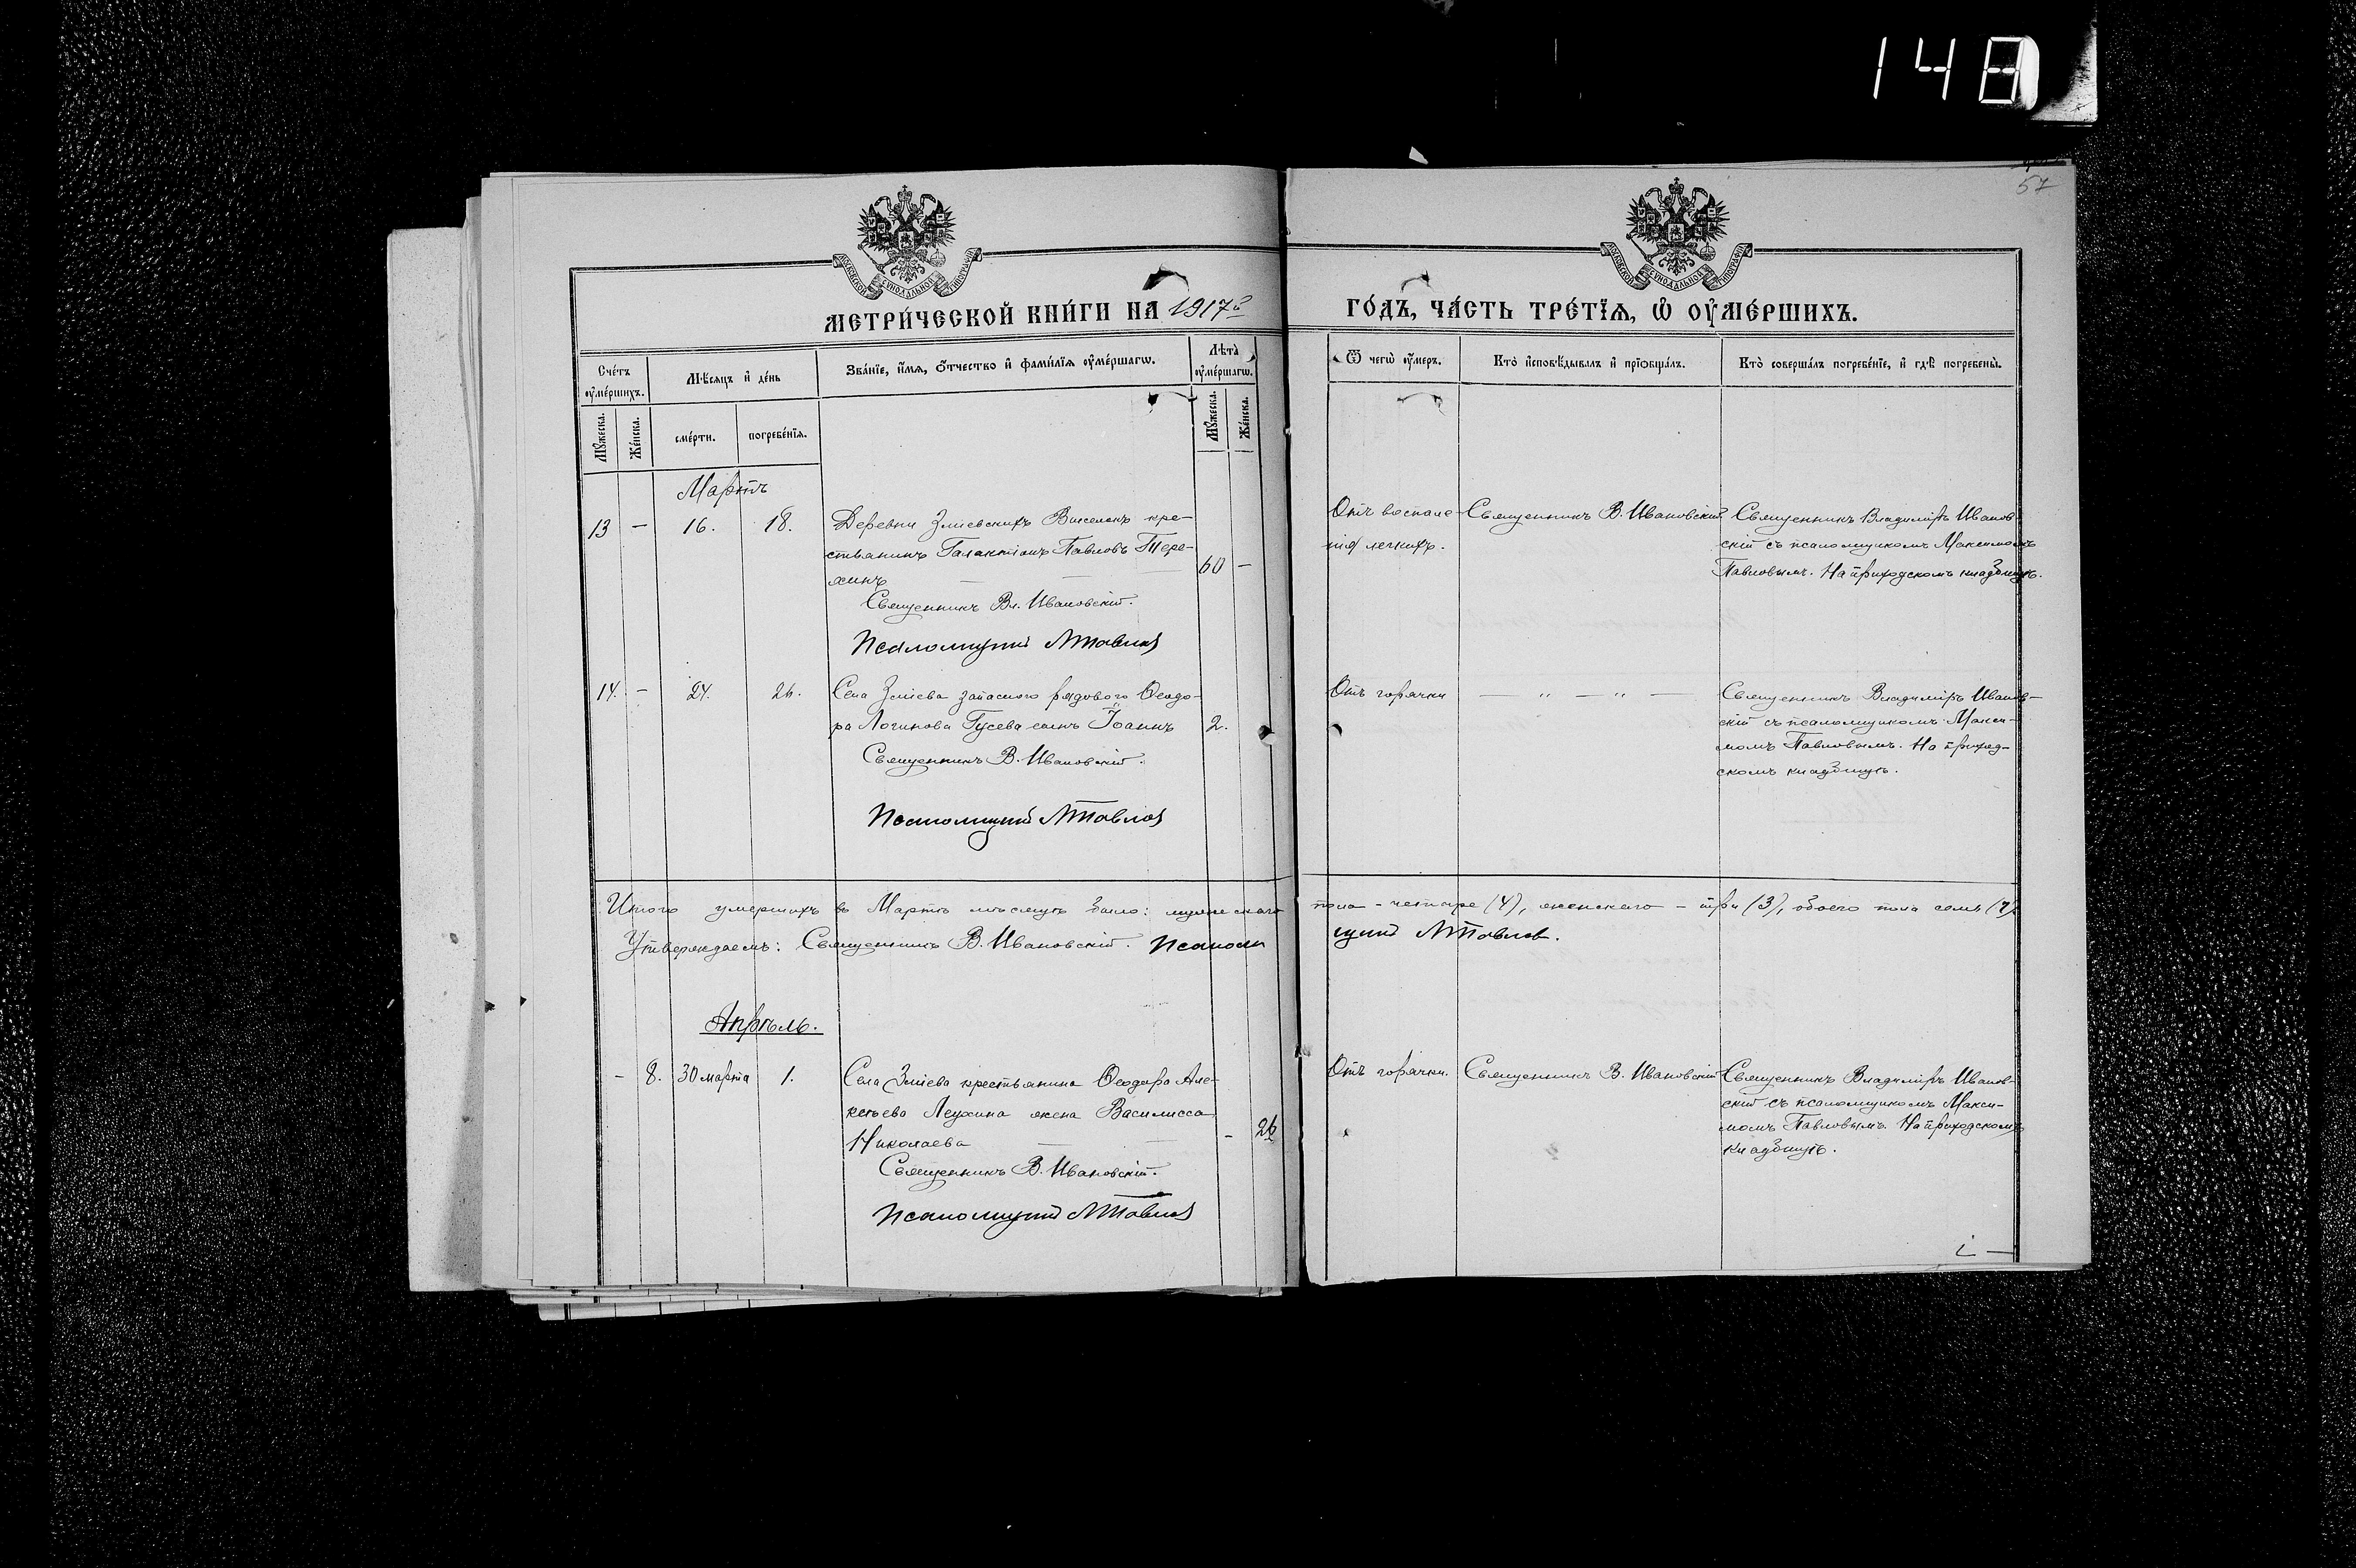 148
57
МОСКОВСКОЙ СѴНОДАЛЬНОЙ ТИПОГРАФІИ
МОСКОВСКОЙ СѴНОДАЛЬНОЙ ТИПОГРАФІИ
МЕТРИ́ЧЕСКОЙ КНИ́ГИ НА 1917й
ГО́ДЪ, ЧА́СТЬ ТРЕ́ТЇѦ, Ѡ҆ ОУ҆МЕ́РШИХЪ.
Сче́тъ оу҆ме́ршихъ.
Мѣ́сяцъ и҆ де́нь
Зва́нїе, и҆́мя, ѻ҆́тчество и҆ фами́лїя оу҆ме́ршагѡ.
Лѣта̀ оу҆ме́ршагѡ.
Ѿ чегѡ̀ оу҆́меръ.
Кто̀ и҆сповѣ́дывалъ и҆ прїѡбща́лъ.
Кто̀ соверша́лъ погребе́нїе, и҆ гдѣ̀ погребены̀.
Мꙋ́жеска.
Же́нска.
сме́рти.
погребе́нїя.
Мꙋ́жеска.
Же́нска.
Мартъ
13 — 16. 18.
Деревни Зміевскихъ Выселокъ кре-
стьянинъ Галактіонъ Павловъ Тере-
хинъ
60 —
Священникъ Вл. Ивановскій.
Псаломщикъ М Павлов
Отъ воспале-
нія легкихъ.
Священникъ В. Ивановскій.
Священникъ Владиміръ Иванов-
скій съ псаломщикомъ Максимомъ
Павловымъ. На приходскомъ кладбищѣ.
14. — 24. 26.
Села Зміева запасного рядового Ѳеодо-
ра Логинова Гусева сынъ Іоаннъ
2.
Священникъ В. Ивановскій.
Псаломщикъ М Павлов
Отъ горячки
— „ — „ —
Священникъ Владиміръ Иванов-
скій съ псаломщикомъ Макси-
момъ Павловымъ. На приход-
скомъ кладбищѣ.
Итого умершихъ въ Мартѣ мѣсяцѣ было: мужескаго пола - четыре (4), женскаго - три (3), обоего пола семь (7).
Утверждаемъ: Священникъ В. Ивановскій. Псаломщикъ М Павлов.
Апрѣль.
— 8. 30 марта 1.
Села Зміева крестьянина Ѳеодора Але-
Василисса
Николаева
— 26
Священникъ В. Ивановскій.
Псаломщикъ М Павлов
Отъ горячки.
Священникъ В. Ивановскій
Священникъ Владиміръ Иванов-
скій съ псаломщикомъ Макси-
момъ Павловымъ. На приходскомъ
кладбищѣ.